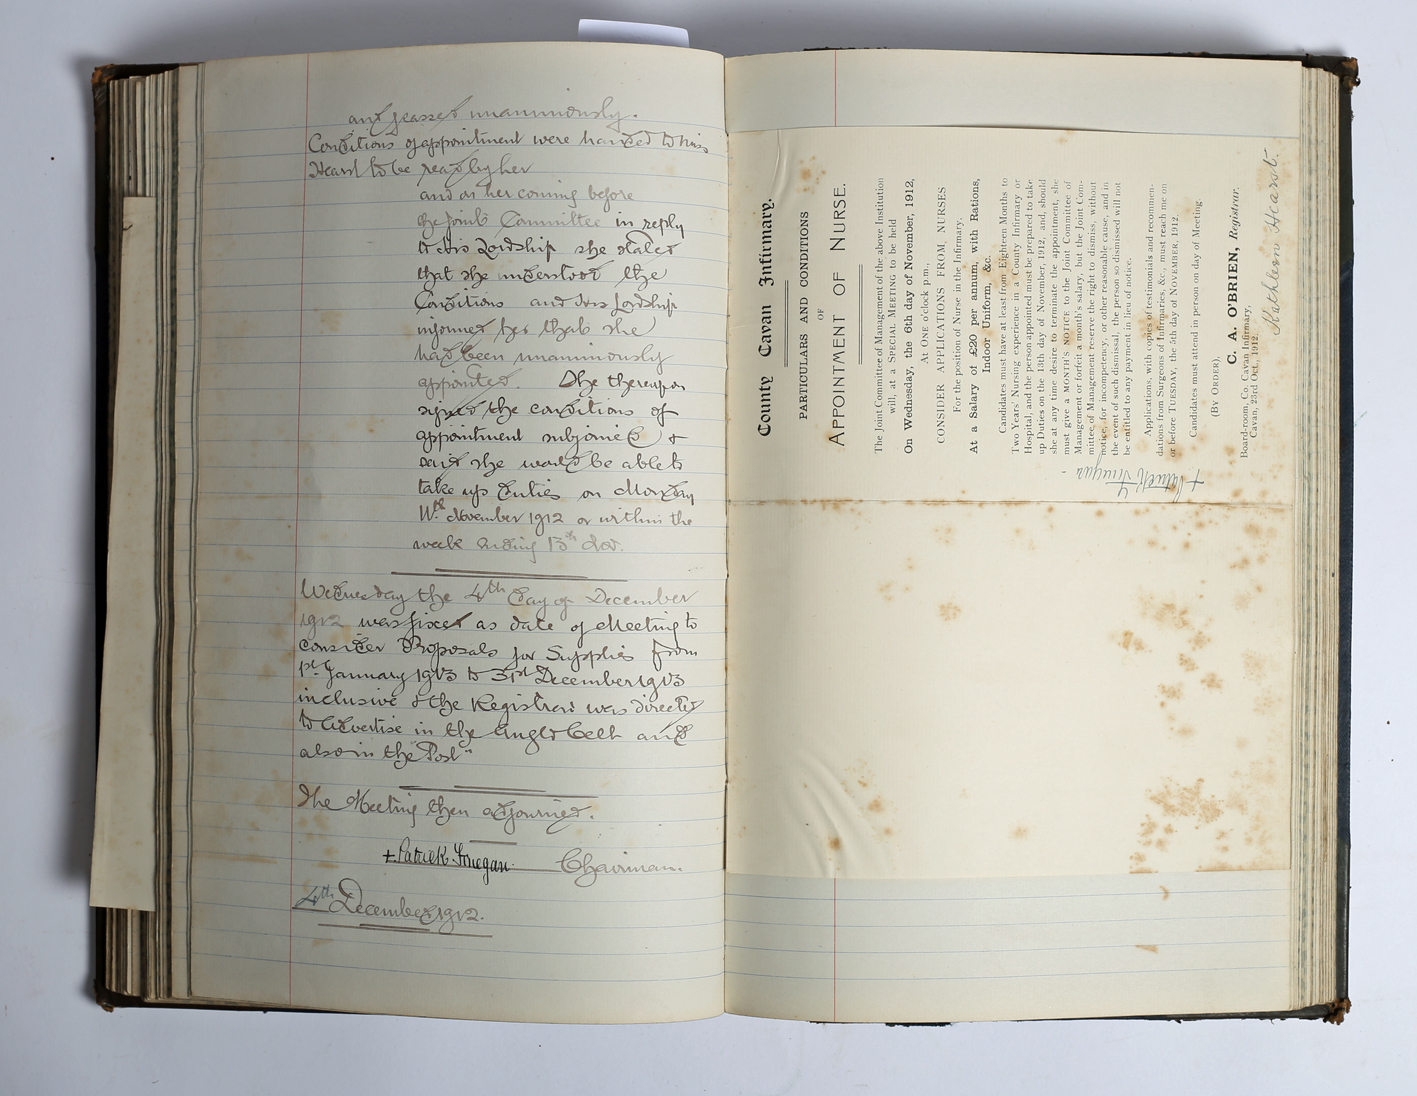 and passed unanimously.
Conditions of appointment were handed to Miss
Hearst to be read by her
and on her coming before
the Joint Committee in reply
to His Lordship she stated
that she understood the
Conditions and His Lordship
informed her that she
had been unanimously
appointed. She thereupon
signed the conditions of
appointment subjoined &
said she would be able to
take up duties on Monday
11th November 1912 or within the
week ending 13th Nov.
Wednesday the 4th day of December
1912 was fixed as date of Meeting to
consider Proposals for Supplies from
1st January 1913 to 31st December 1913
inclusive & the Registrar was directed
to Advertise in the Anglo Celt and
also in the "Post"
The Meeting then adjourned.
+ Patrick Finegan Chairman.
4th December 1912.
County Cavan Infirmary.
PARTICULARS AND CONDITIONS
OF
APPOINTMENT OF NURSE.
The Joint Committee of Management of the above Institution
will, at a SPECIAL MEETING to be held
On Wednesday, the 6th day of November, 1912,
At ONE o'clock p.m.,
CONSIDER APPLICATIONS FROM NURSES
For the position of Nurse in the Infirmary.
At a Salary of £20 per annum, with Rations,
Indoor Uniform, &c.
Candidates must have at least from Eighteen Months to
Two Years' Nursing experience in a County Infirmary or
Hospital, and the person appointed must be prepared to take
up Duties on the 13th day of November, 1912, and, should
she at any time desire to terminate the appointment, she
must give a MONTH'S NOTICE to the Joint Committee of
Management or forfeit a month's salary, but the Joint Com-
mittee of Management reserve the right to dismiss, without
notice, for incompetency, or other reasonable cause, and in
the event of such dismissal, the person so dismissed will not
be entitled to any payment in lieu of notice.
Applications, with copies of testimonials and recommen-
dations from Surgeons of Infirmaries, &c., must reach me on
or before TUESDAY, the 5th day of NOVEMBER, 1912.
Candidates must attend in person on day of Meeting
(BY ORDER),
C. A. O'BRIEN, Registrar.
Board-room, Co. Cavan Infirmary,
Cavan, 23rd Oct., 1912.
Kathleen Hearst.
+ Patrick Finegan